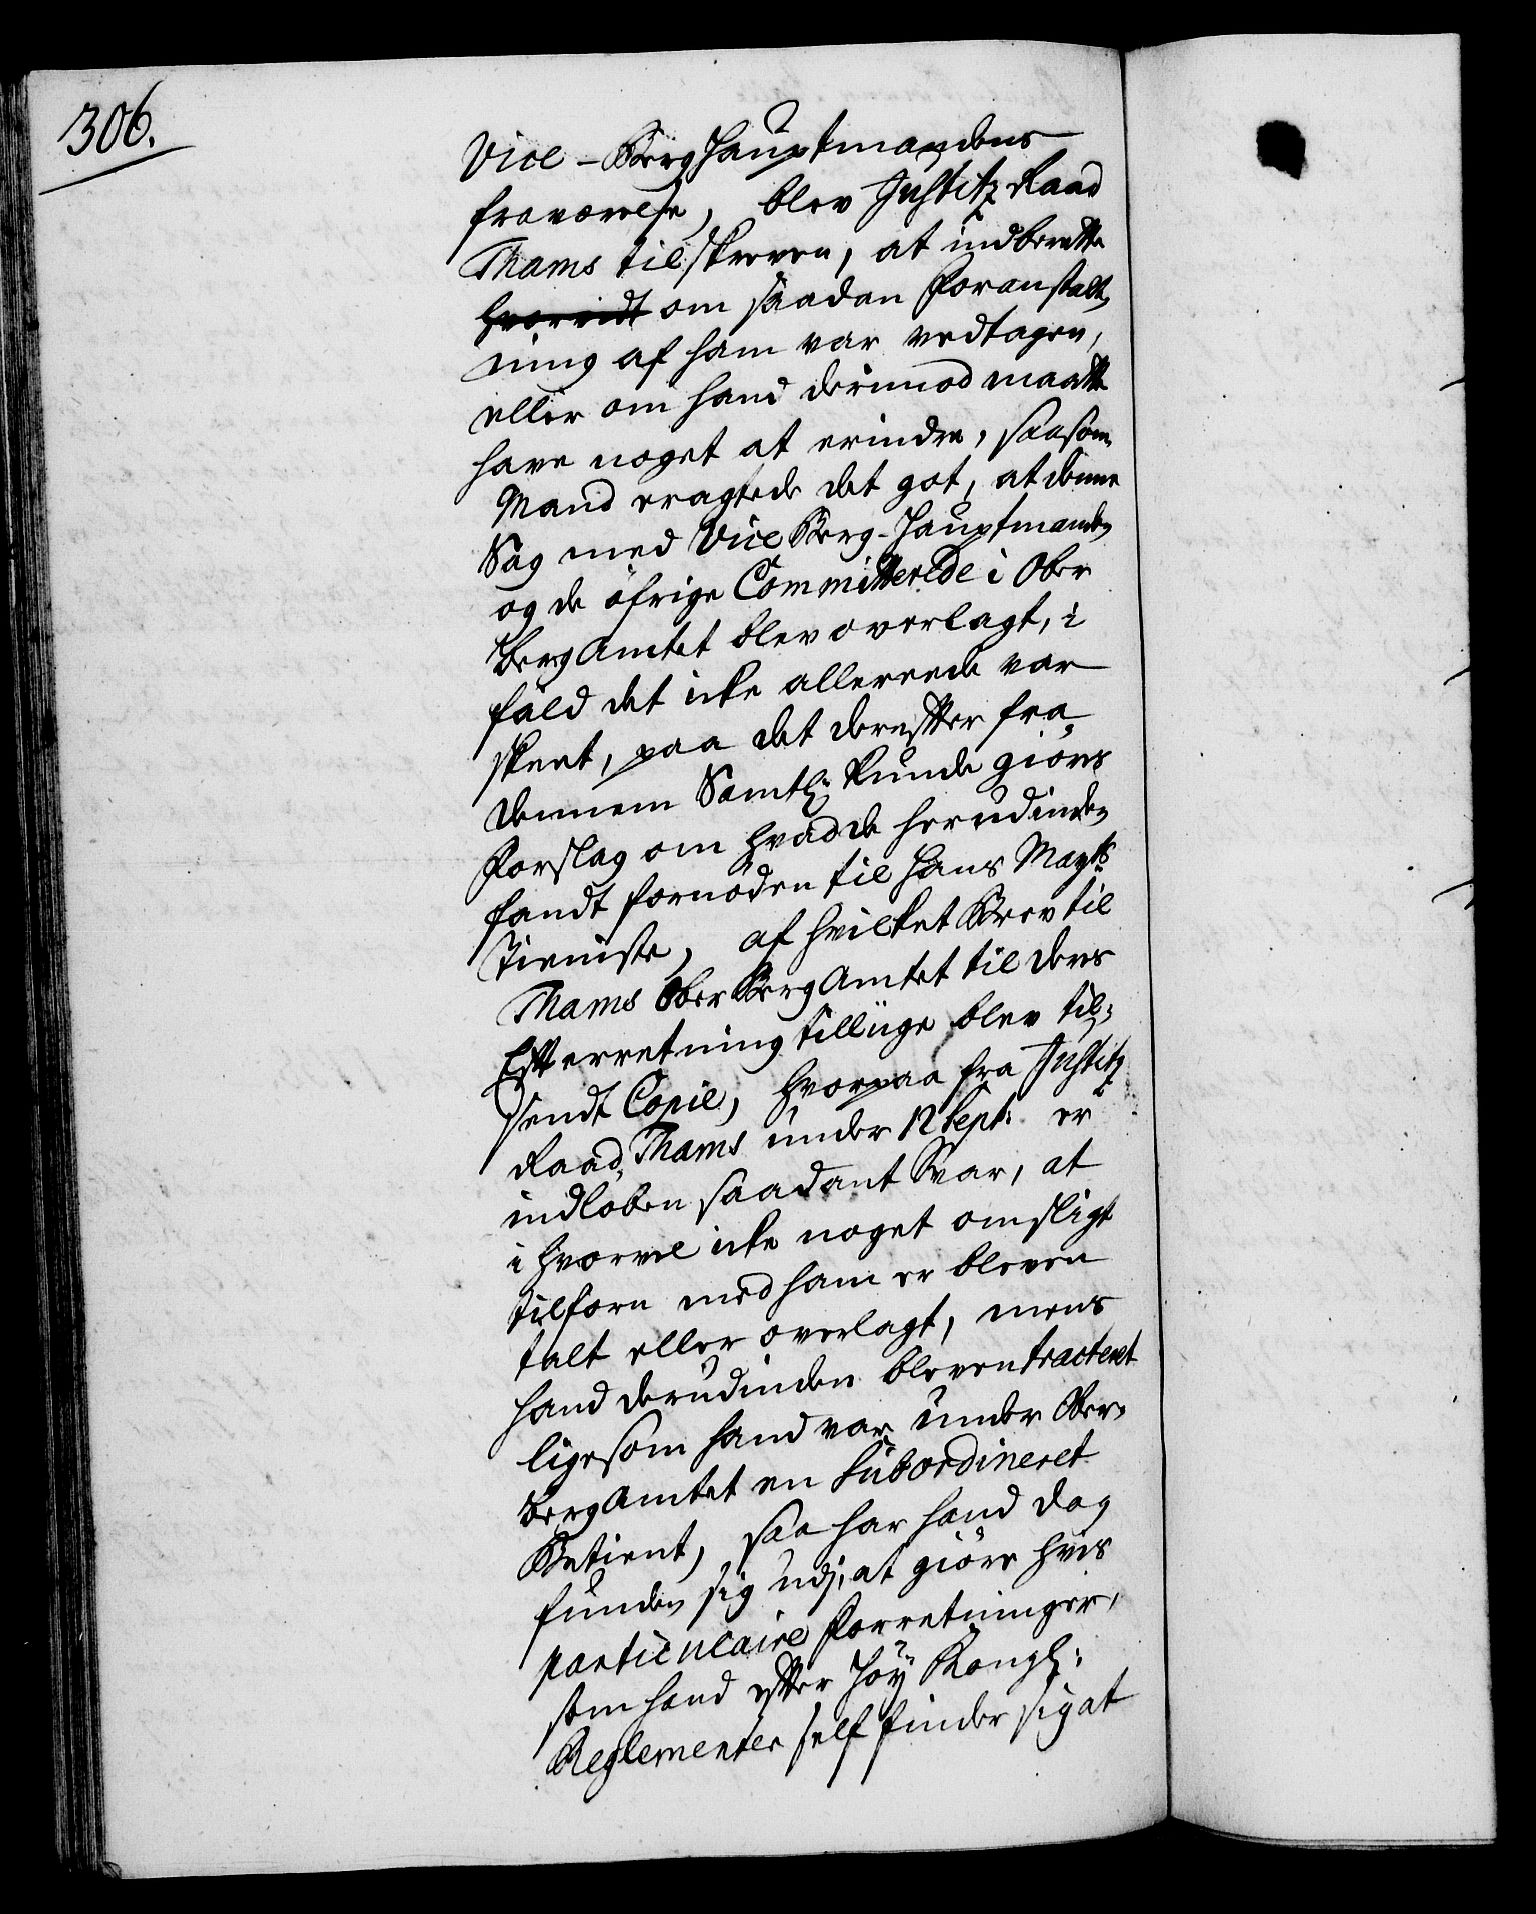 306.
Vice-Berg Hauptmandens
fraværelse, blev Justitz Raad
Thams tilskreven, at indberette
hvorvidt om saadan Foranstalt,
ning af ham var vedtagen,
eller om hand derimod maatte
have noget at erindre, saasom
Mand eragtede det got, at denne
Sag med Vice Berg-Hauptmanden
og de öfrige Committerede i Ober
berg Amtet blev overlagt, i
fald det icke allereede var
skeet, paa det derefter fra
dennem Samtl: kunde giöres
Forslag om hvad de herudinden
fandt fornöden til Hans Mayts
Tieniste, af hvilket Brev til
Thams Ober Berg Amtet til deres
Efterretning tillige blev til,
sendt Copie, hvorpaa fra Justitz
Raad Thams under 12 Sept: er
indloben saadant Svar, at
i hvorvel icke noget om sligt
tilforn med ham er bleven
talt eller overlagt, mens
hand derudinden bleven tracteret
ligesom hand var under Ober,
berg Amtet en Subordineret
Betient, saa har hand dog
funden sig udj, at giöre hvis
particulaire Forretninger,
som hand efter Höy Kongl:
Reglementer self finder sig at